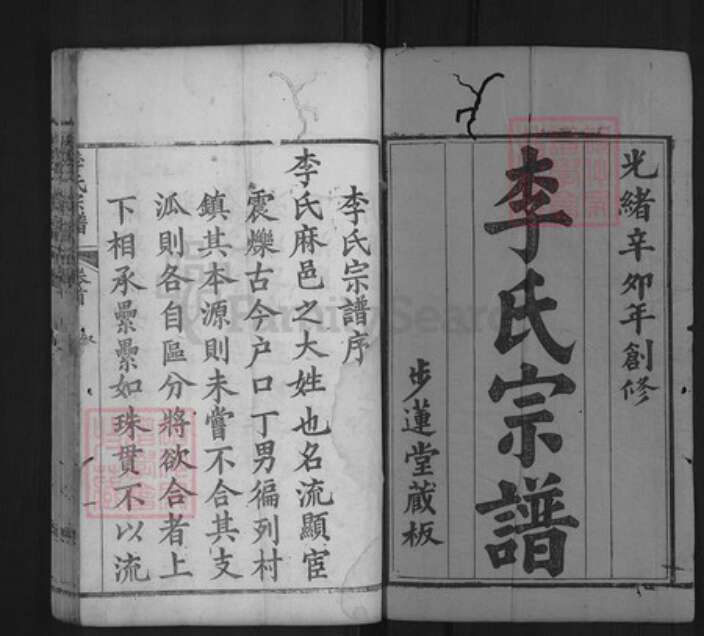 光緒辛卯年創修
李氏宗譜
步蓮堂藏板
李氏宗譜序
李氏麻邑之大姓也名流顯宦
震爍古今户口丁男徧列村
鎮其本源則未嘗不合其支
派則各自區分將欲合者上
下相承纍纍如珠貫不以流
李氏宗譜 卷首 
FamilySearch